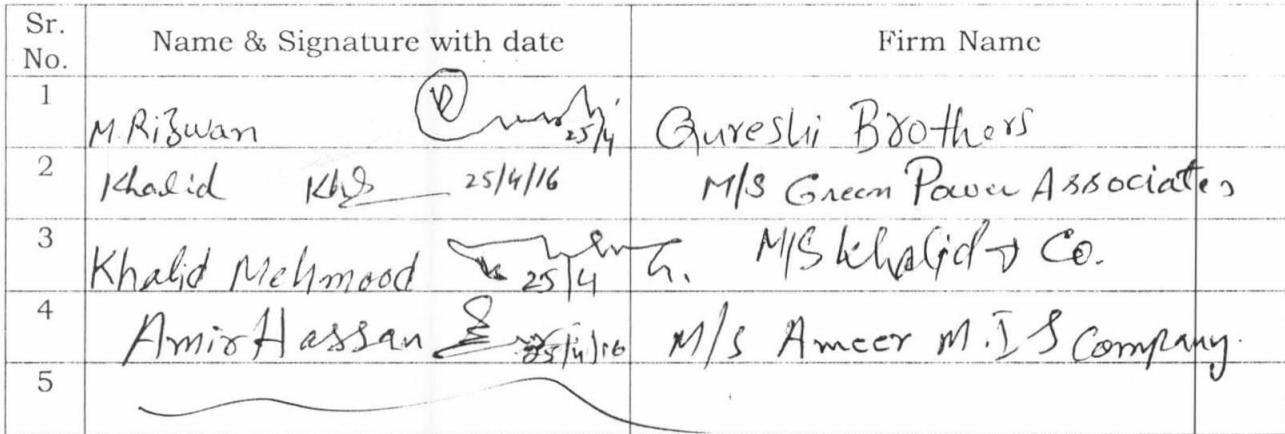 Sr. No. Name & Signature with date Firm Name
1 M. Rizwan 25/4 Qureshi Brothers
2 Khalid 25/4/16 M/S Green Power Associates
3 Khalid Mehmood 25/4 M/S Khalid & Co.
4 Amir Hassan 25/4/16 M/s Ameer M.I S Company.
5